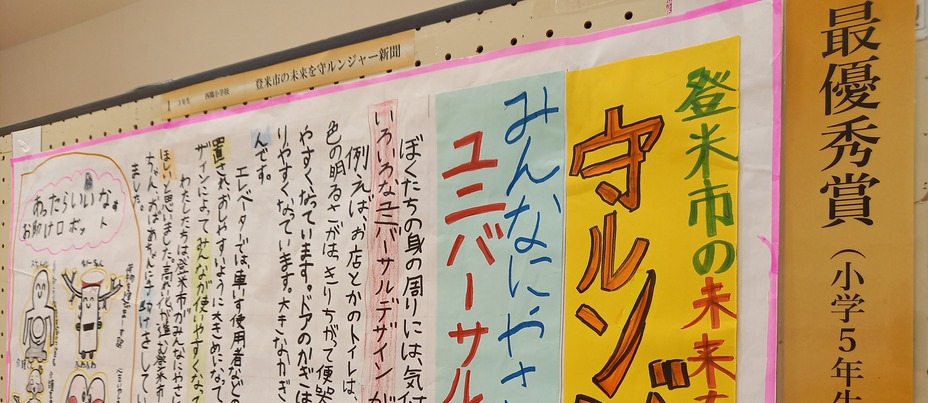 最優秀賞（小学5年生
登米市の未来を守ルンジャー新聞
登米市の未来
守ルンジ
みんなにやさ
ユニバーサル
ぼくたちの身の周りには、気付
いろいろなユニバーサルデザインが
例えば、お店とかのトイレは、
色の明るこがはっきりちがって便器
やすくなっています。ドアのかぎは
りやすくなっています。大きなかぎ
んです。
エレベーターでは車いす使用者などの
置され、おしやすいように大きめになって
ザインによってみんなが使いやすくなっ
わたしたちは登米市がみんなにやさ
ほしいと思いました。高れい化が進む登米市
ちゃん、おばあちゃんに手助けをしてい
ました。
あったらいいな
お助けロボット